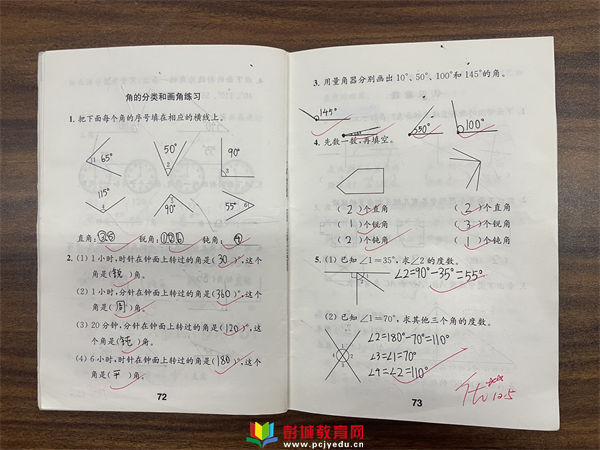 角的分类和画角练习
1. 把下面每个角的序号填在相应的横线上。
1 65° 50° 2 90° 3
115° 4 5 90° 55° 6
直角: ③⑤ 锐角: ①②⑥ 钝角: ④
2. (1) 1小时,时针在钟面上转过的角是(30)°,这个
角是(锐)角。
(2) 1小时,分针在钟面上转过的角是(360)°,这个
角是(周)角。
(3) 20分钟,分针在钟面上转过的角是(120)°,这
个角是(钝)角。
(4) 6小时,时针在钟面上转过的角是(180)°,这个
角是(平)角。
72
3. 用量角器分别画出10°、50°、100°和145°的角。
145° 50° 100°
4. 先数一数,再填空。
(2)个直角 (2)个直角
(1)个锐角 (3)个锐角
(2)个钝角 (1)个钝角
5. (1) 已知∠1=35°,求∠2的度数。
∠2=90°-35°=55°
(2) 已知∠1=70°,求其他三个角的度数。
∠2=180°-70°=110°
∠3=∠1=70°
∠4=∠2=110°
1 2 3 4
优
12.5
73
彭城教育网
www.pcjyedu.cn